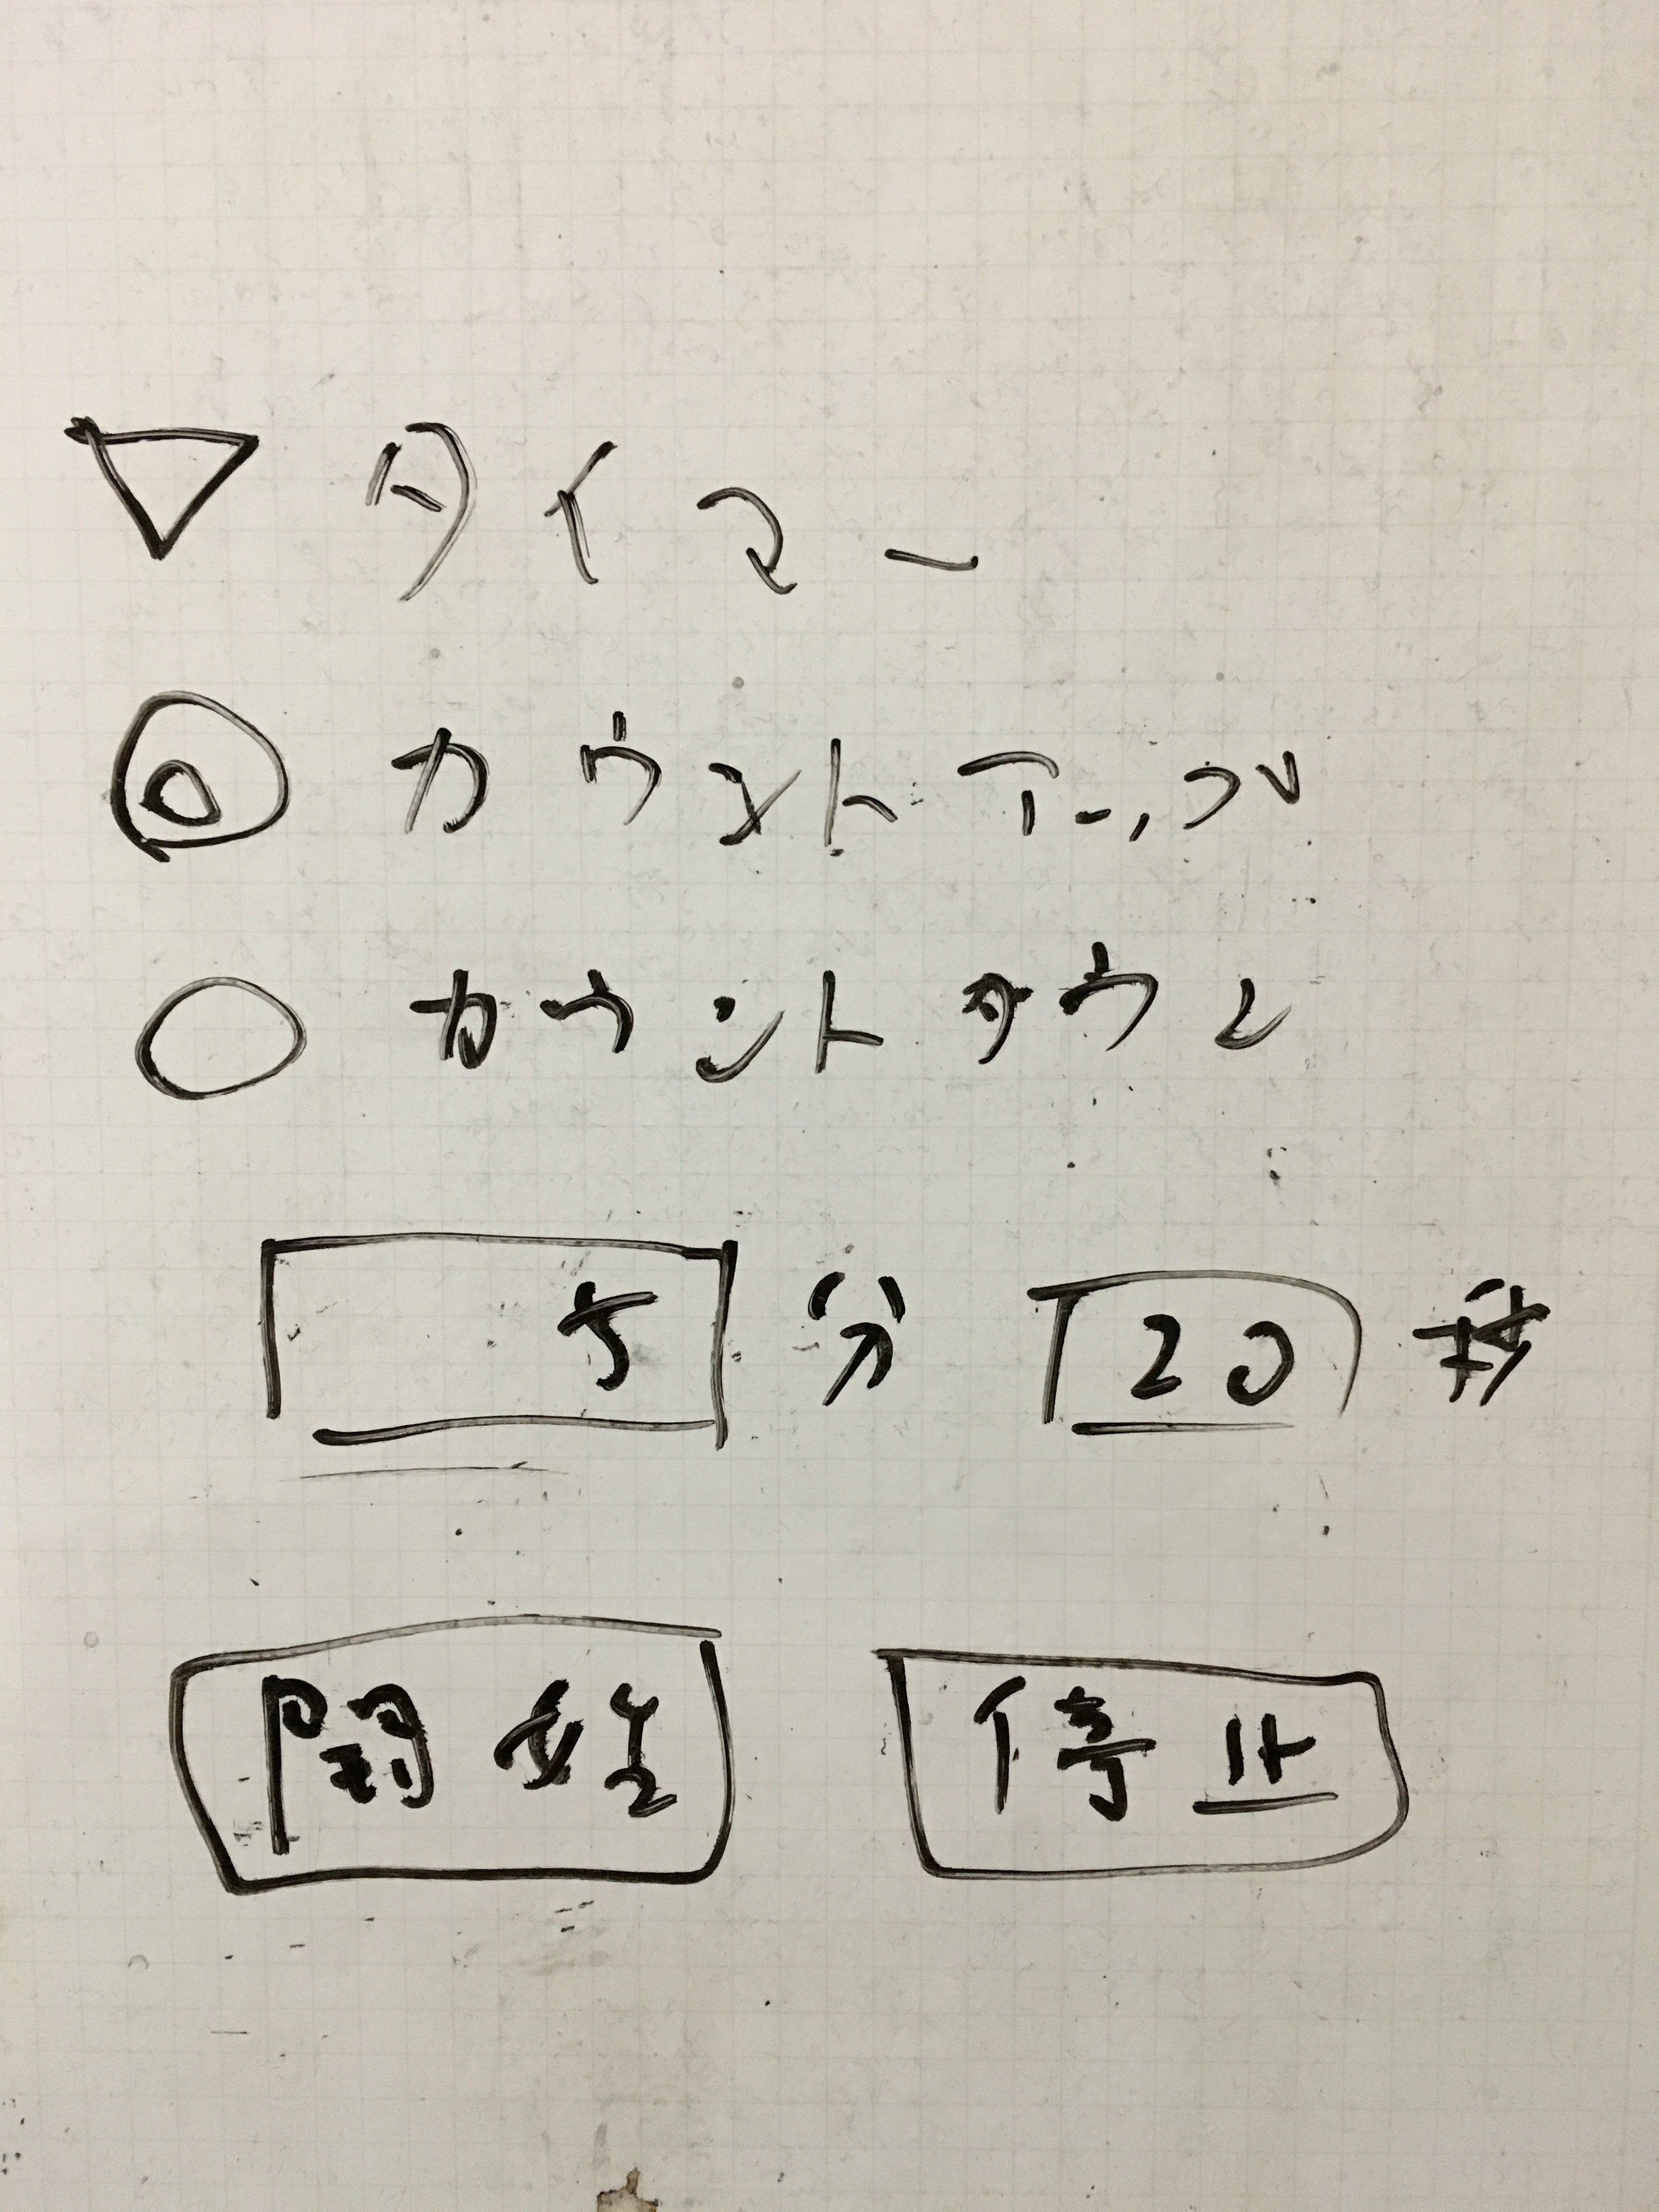 ▽ タイマー
◎ カウントアップ
○ カウントダウン
5 分 20 秒
開始 停止